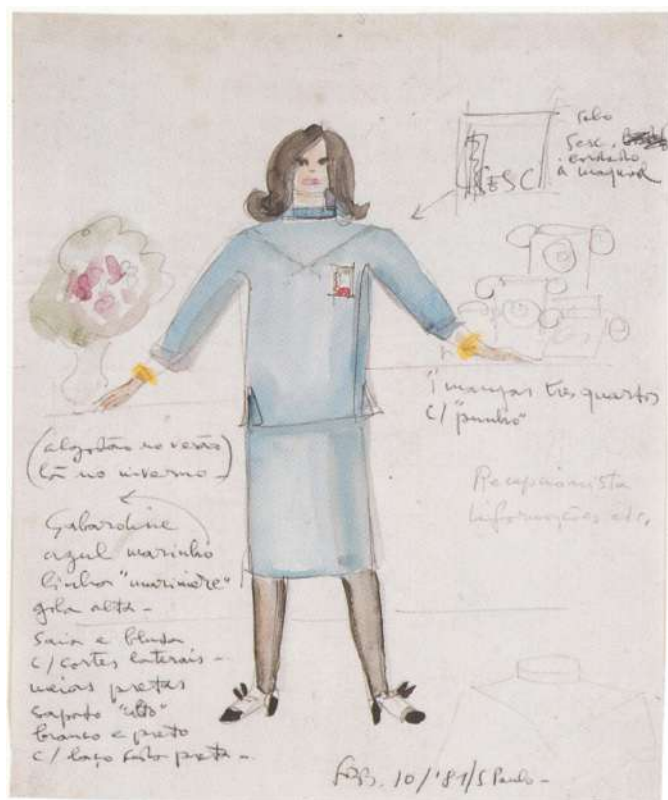 SESC
selo
Sesc.
bordado
à maquina
mangas tres quartos
c/ "punho"
Recepcionista
informações etc.
(algodão no verão
lã no inverno -)
Gabardine
azul marinho
linha "marinare"
gola alta -
saia e blusa
c/ cortes laterais -
meias pretas
sapato "alto"
branco e preto
c/ laço fita preta -
10/'81/S Paulo -